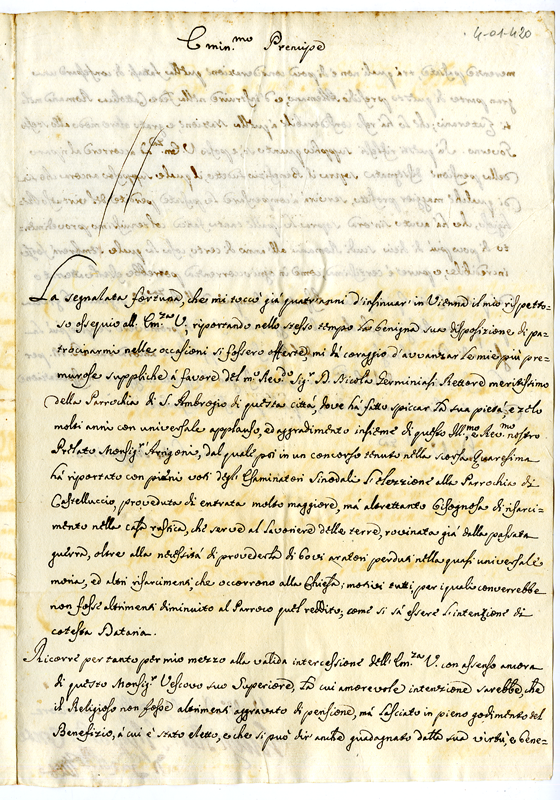 4-01-420
Emin.mo Prencipe
La segnalata fortuna, che mi toccò già quatr'anni d'insinuar' in Vienna il mio rispetto-
so ossequio all' Em.za V. riportando nello stesso tempo la benigna sua disposizione di pa-
trocinarmi nelle occasioni si fossero offerte, mi dà coraggio d'avvanzar le mie più pre-
murose suppliche à favore del m.o Rev.do Sig.r D. Nicola Geminiasi Rettore meritissimo
della Parrochia di S. Ambrogio di questa città, dove hà fatto spiccar la sua pietà, e zelo
molti anni con universale applauso, ed aggradimento insieme di questo Ill.mo e Rev.mo nostro
Prelato Monsig.r Arrigoni, dal quale poi in un concorso tenuto nella scorsa Quaresima
hà riportato con pieni voti degli Esaminatori Sinodali l'elezzione alla Parrochia di
Castelluccio, proveduta di entrata molto maggiore, mà altrettanto bisognosa di risarci-
mento nella casa rustica, che serve al Lavoriere delle terre, rovinata già dalla passata
guerra, oltre alla necessità di provederla di bovi aratori perduti nella quasi universale
moria, ed altri risarcimenti, che occorrono alla Chiesa; motivi tutti, per i quali converrebbe
non fosse altrimenti diminuito al Parroco quel reddito, come si sà essere l'intenzione di
cotesta Dataria.
Ricorre per tanto per mio mezzo alla valida intercessione dell' Em.za V. con assenso ancora
di questo Monsig.r Vescovo suo Superiore, la cui amorevole intenzione sarebbe, che
il Religioso non fosse altrimenti aggravato di pensione, mà lasciato in pieno godimento del
Benefizio, à cui è stato eletto, e che si può dir anche guadagnato dalla sua virtù, e bene-